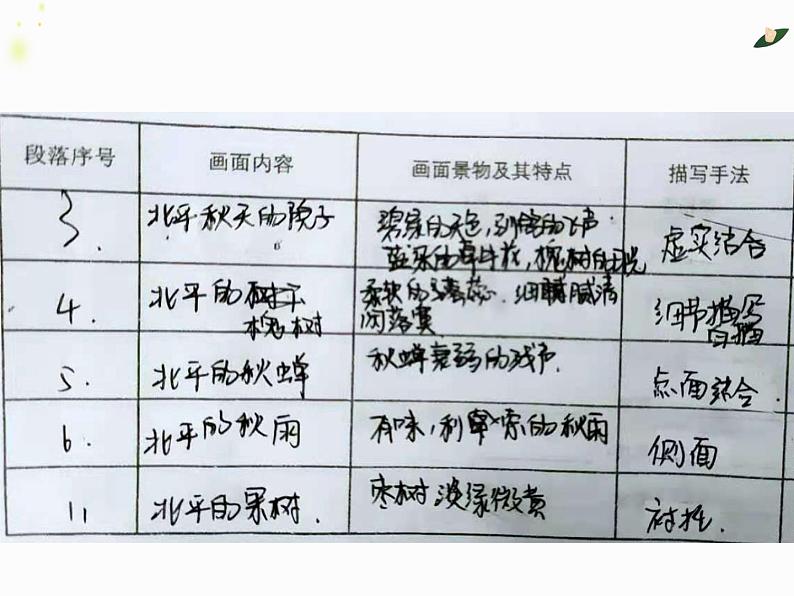 段落序号 画面内容 画面景物及其特点 描写手法
3. 北平秋天的院子 碧绿的天色,驯鸽的飞声 虚实结合
蓝朵的牵牛花,槐树的
4. 北平的 柔软的 细腻 清 细节描写
槐树 闲落寞 白描
5. 北平的秋蝉 秋蝉衰弱的残声. 点面结合.
6. 北平的秋雨 有味,利索的秋雨 侧面
11 北平的果树. 枣树 淡绿微黄 衬托.